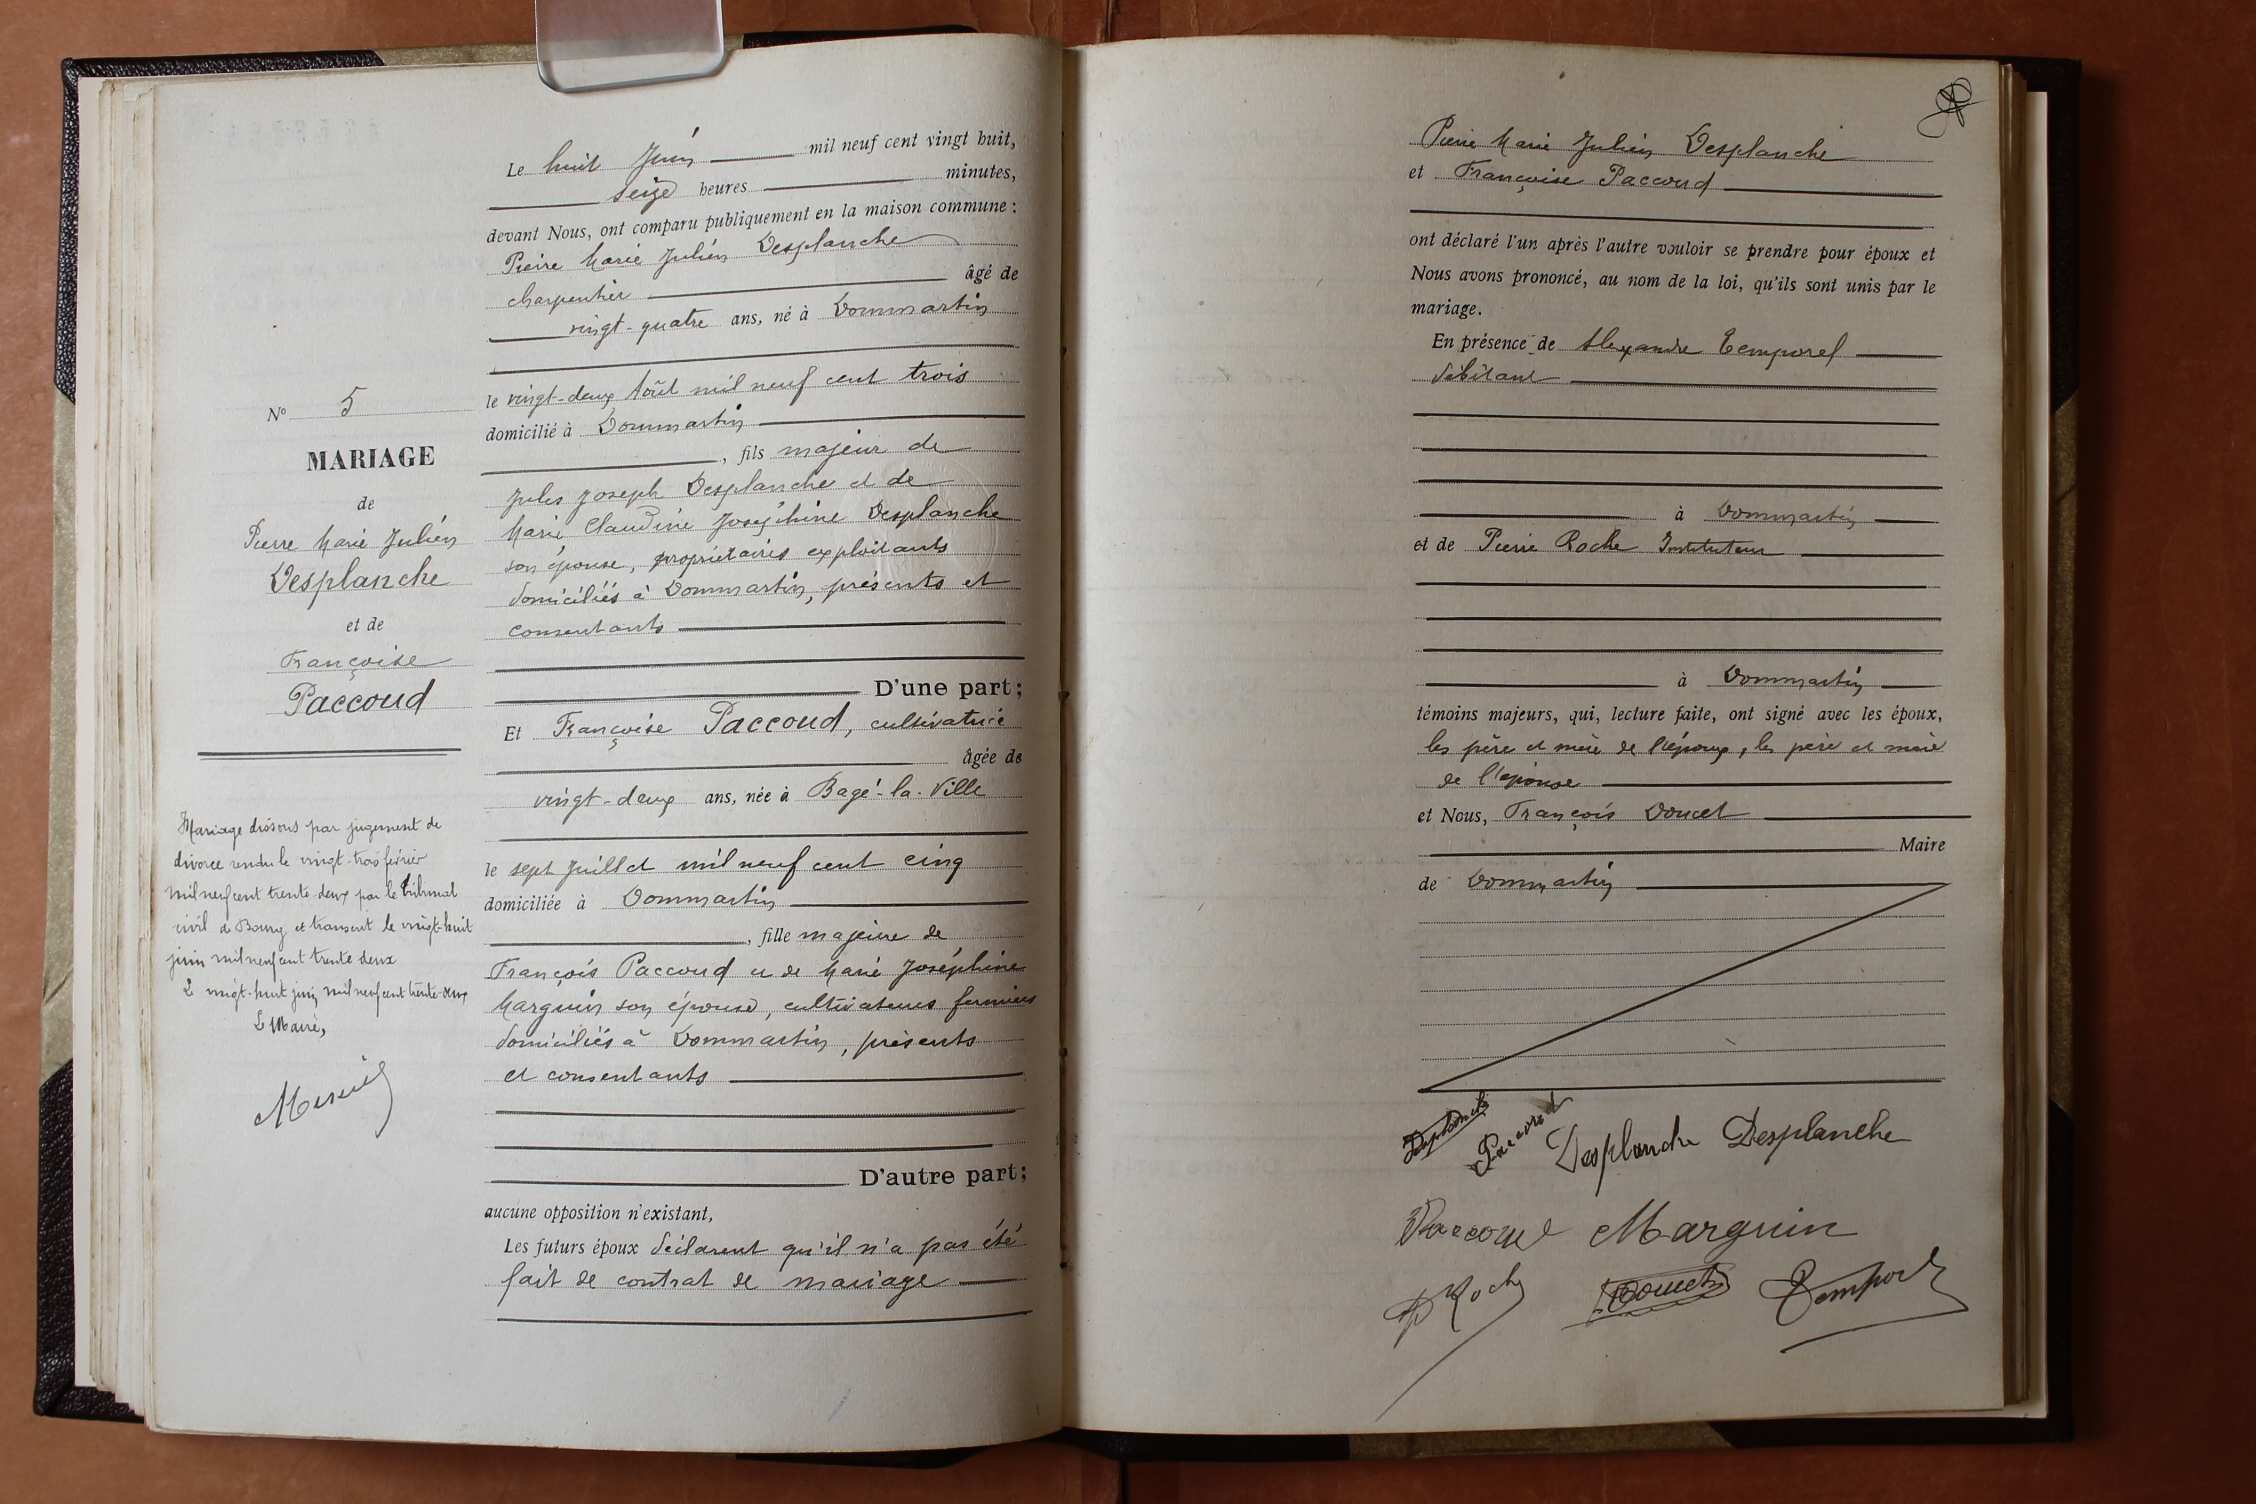 N° 5
MARIAGE
de
Pierre Marie Julien
Desplanche
et de
Françoise
Paccoud
Mariage dissous par jugement de
divorce rendu le vingt-trois février
mil neuf cent trente-deux par le Tribunal
civil de Bourg et transcrit le vingt-huit
juin mil neuf cent trente deux
Le vingt-huit juin mil neuf cent trente-deux
Le Maire,
Le huit Juin mil neuf cent vingt huit,
seize heures minutes,
devant Nous, ont comparu publiquement en la maison commune :
Pierre Marie Julien Desplanche
charpentier âgé de
vingt-quatre ans, né à Dommartin
le vingt-deux Août mil neuf cent trois
domicilié à Dommartin
, fils majeur de
Jules Joseph Desplanche et de
Marie Claudine Joséphine Desplanche
son épouse, propriétaires exploitants
domiciliés à Dommartin, présents et
consentants
D'une part ;
Et Françoise Paccoud, cultivatrice
âgée de
vingt-deux ans, née à Bagé-la-Ville
le sept Juillet mil neuf cent cinq
domiciliée à Dommartin
, fille majeure de
François Paccoud et de Marie Joséphine
Marguin son épouse, cultivateurs fermiers
domiciliés à Dommartin, présents
et consentants
D'autre part ;
aucune opposition n'existant,
Les futurs époux déclarent qu'il n'a pas été
fait de contrat de mariage
Pierre Marie Julien Desplanche
et Françoise Paccoud
ont déclaré l'un après l'autre vouloir se prendre pour époux et
Nous avons prononcé, au nom de la loi, qu'ils sont unis par le
mariage.
En présence de Alexandre Temporel
débitant
à Dommartin
et de Pierre Roche Instituteur
à Dommartin
témoins majeurs, qui, lecture faite, ont signé avec les époux,
les père et mère de l'époux, les père et mère
de l'épouse
et Nous, François Doucet
Maire
de Dommartin
Desplanche Paccoud Desplanche Desplanche
Paccoud Marguin
P Roche Doucet Temporel